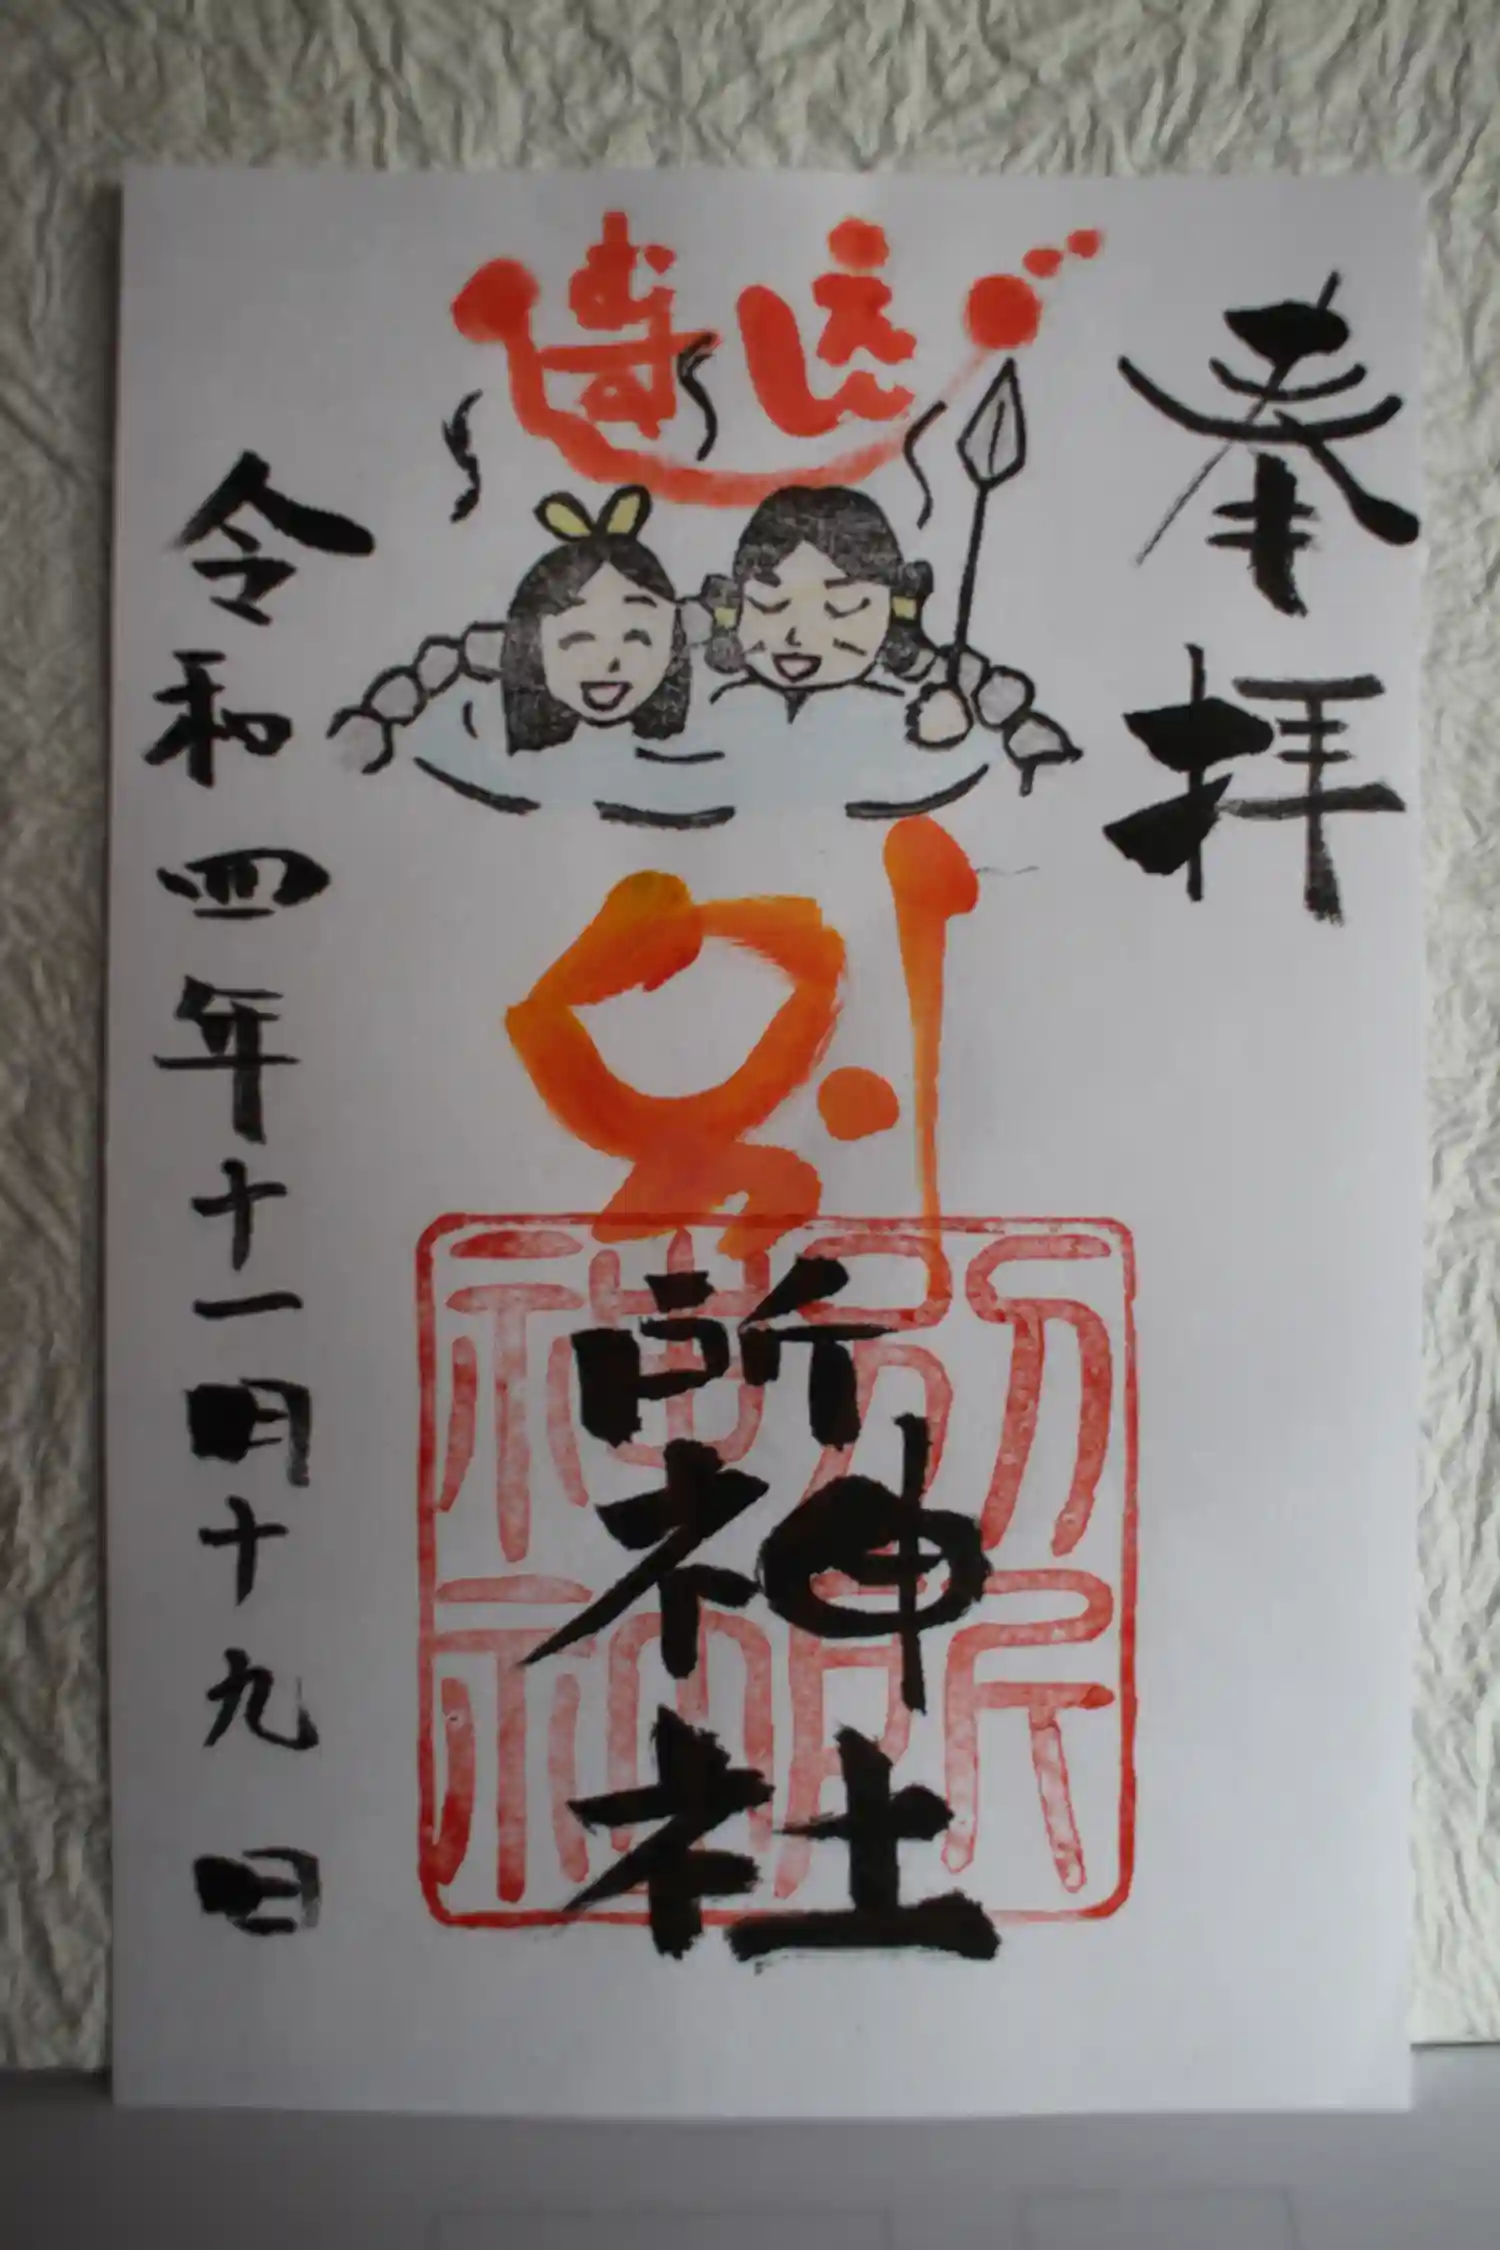 奉拝
別所神社
別所
神社
令和四年十一月十九日